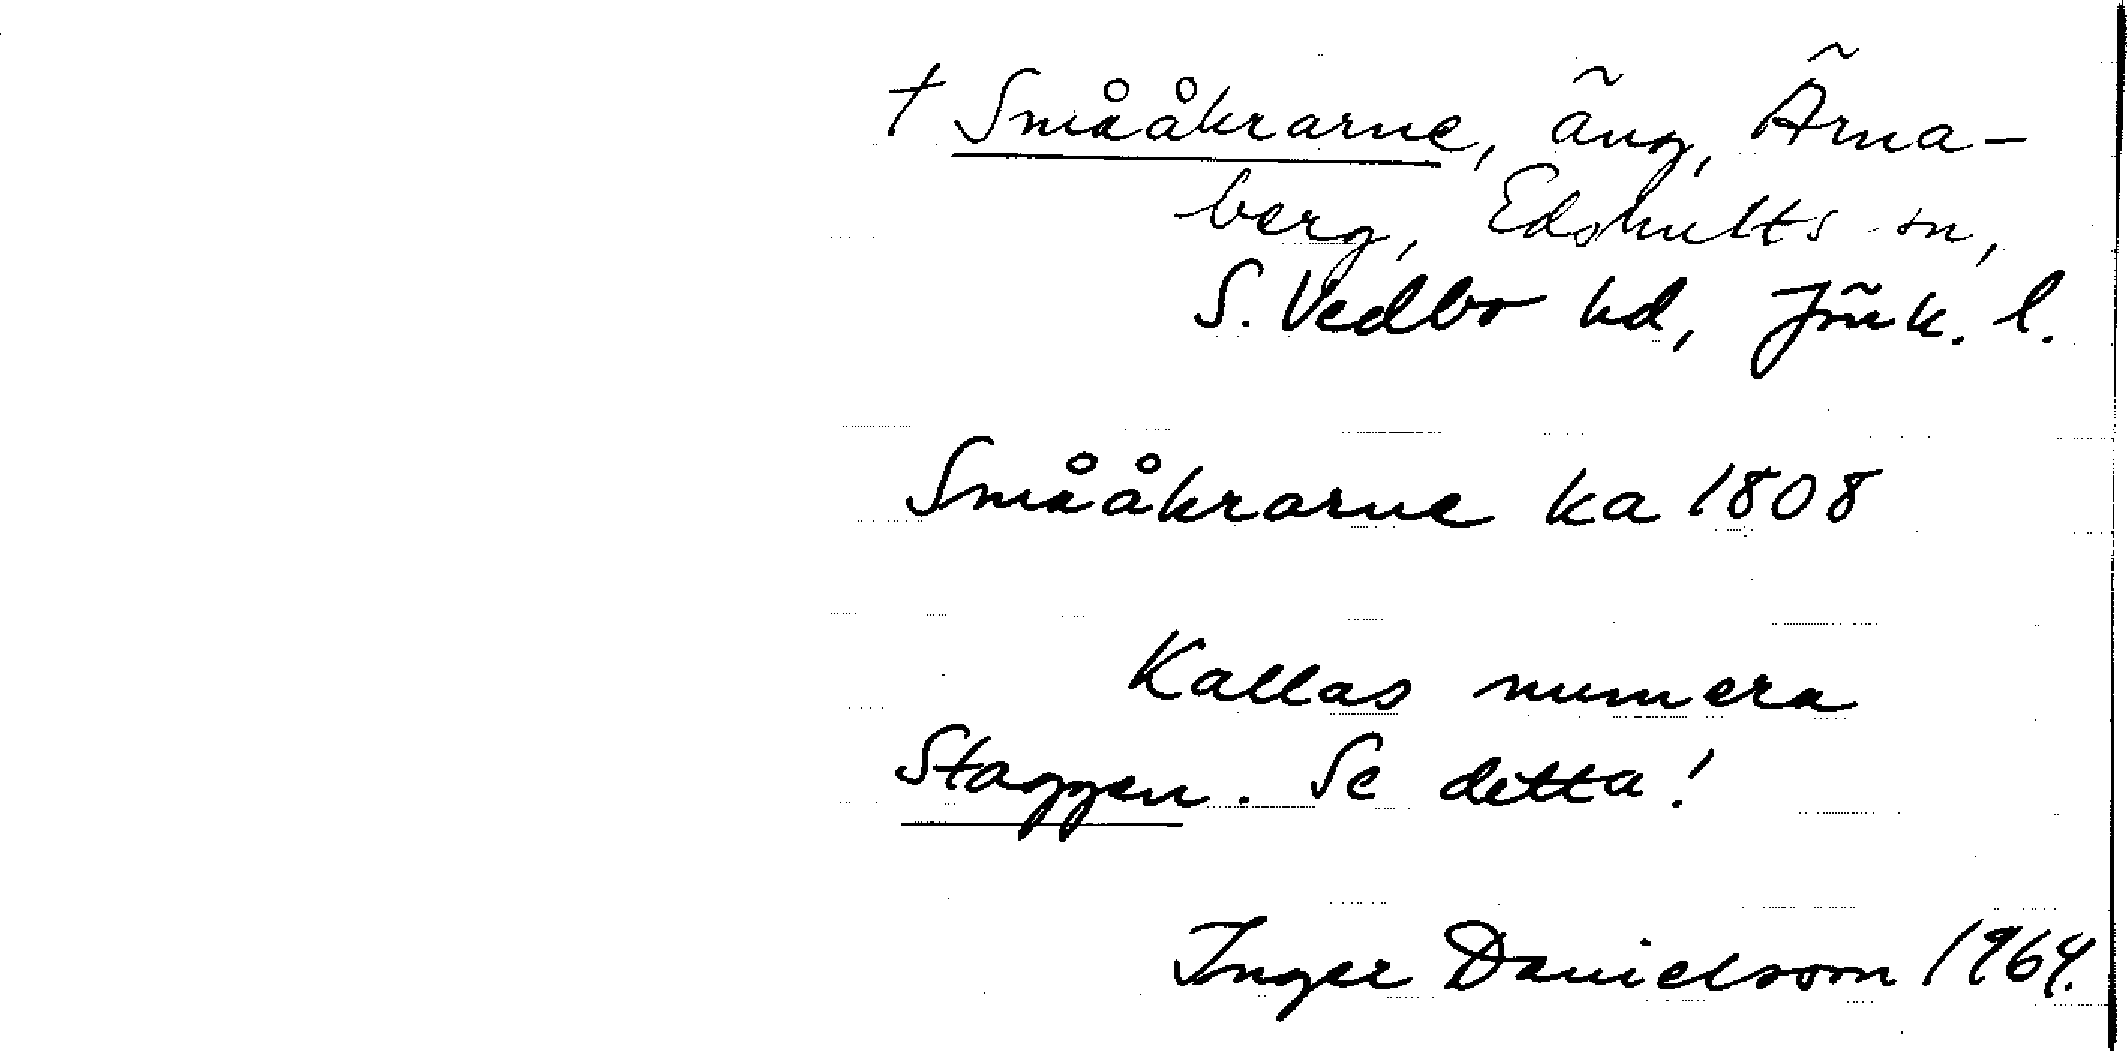 † Småå̊krarne, äng, Ärna-
berg, Edshults sn,
S. Vedbo hd, Jönk. l.
Småå̊krarne ka 1808
Kallas numera
Staggen. Se detta!
Inger Danielsson 1964.